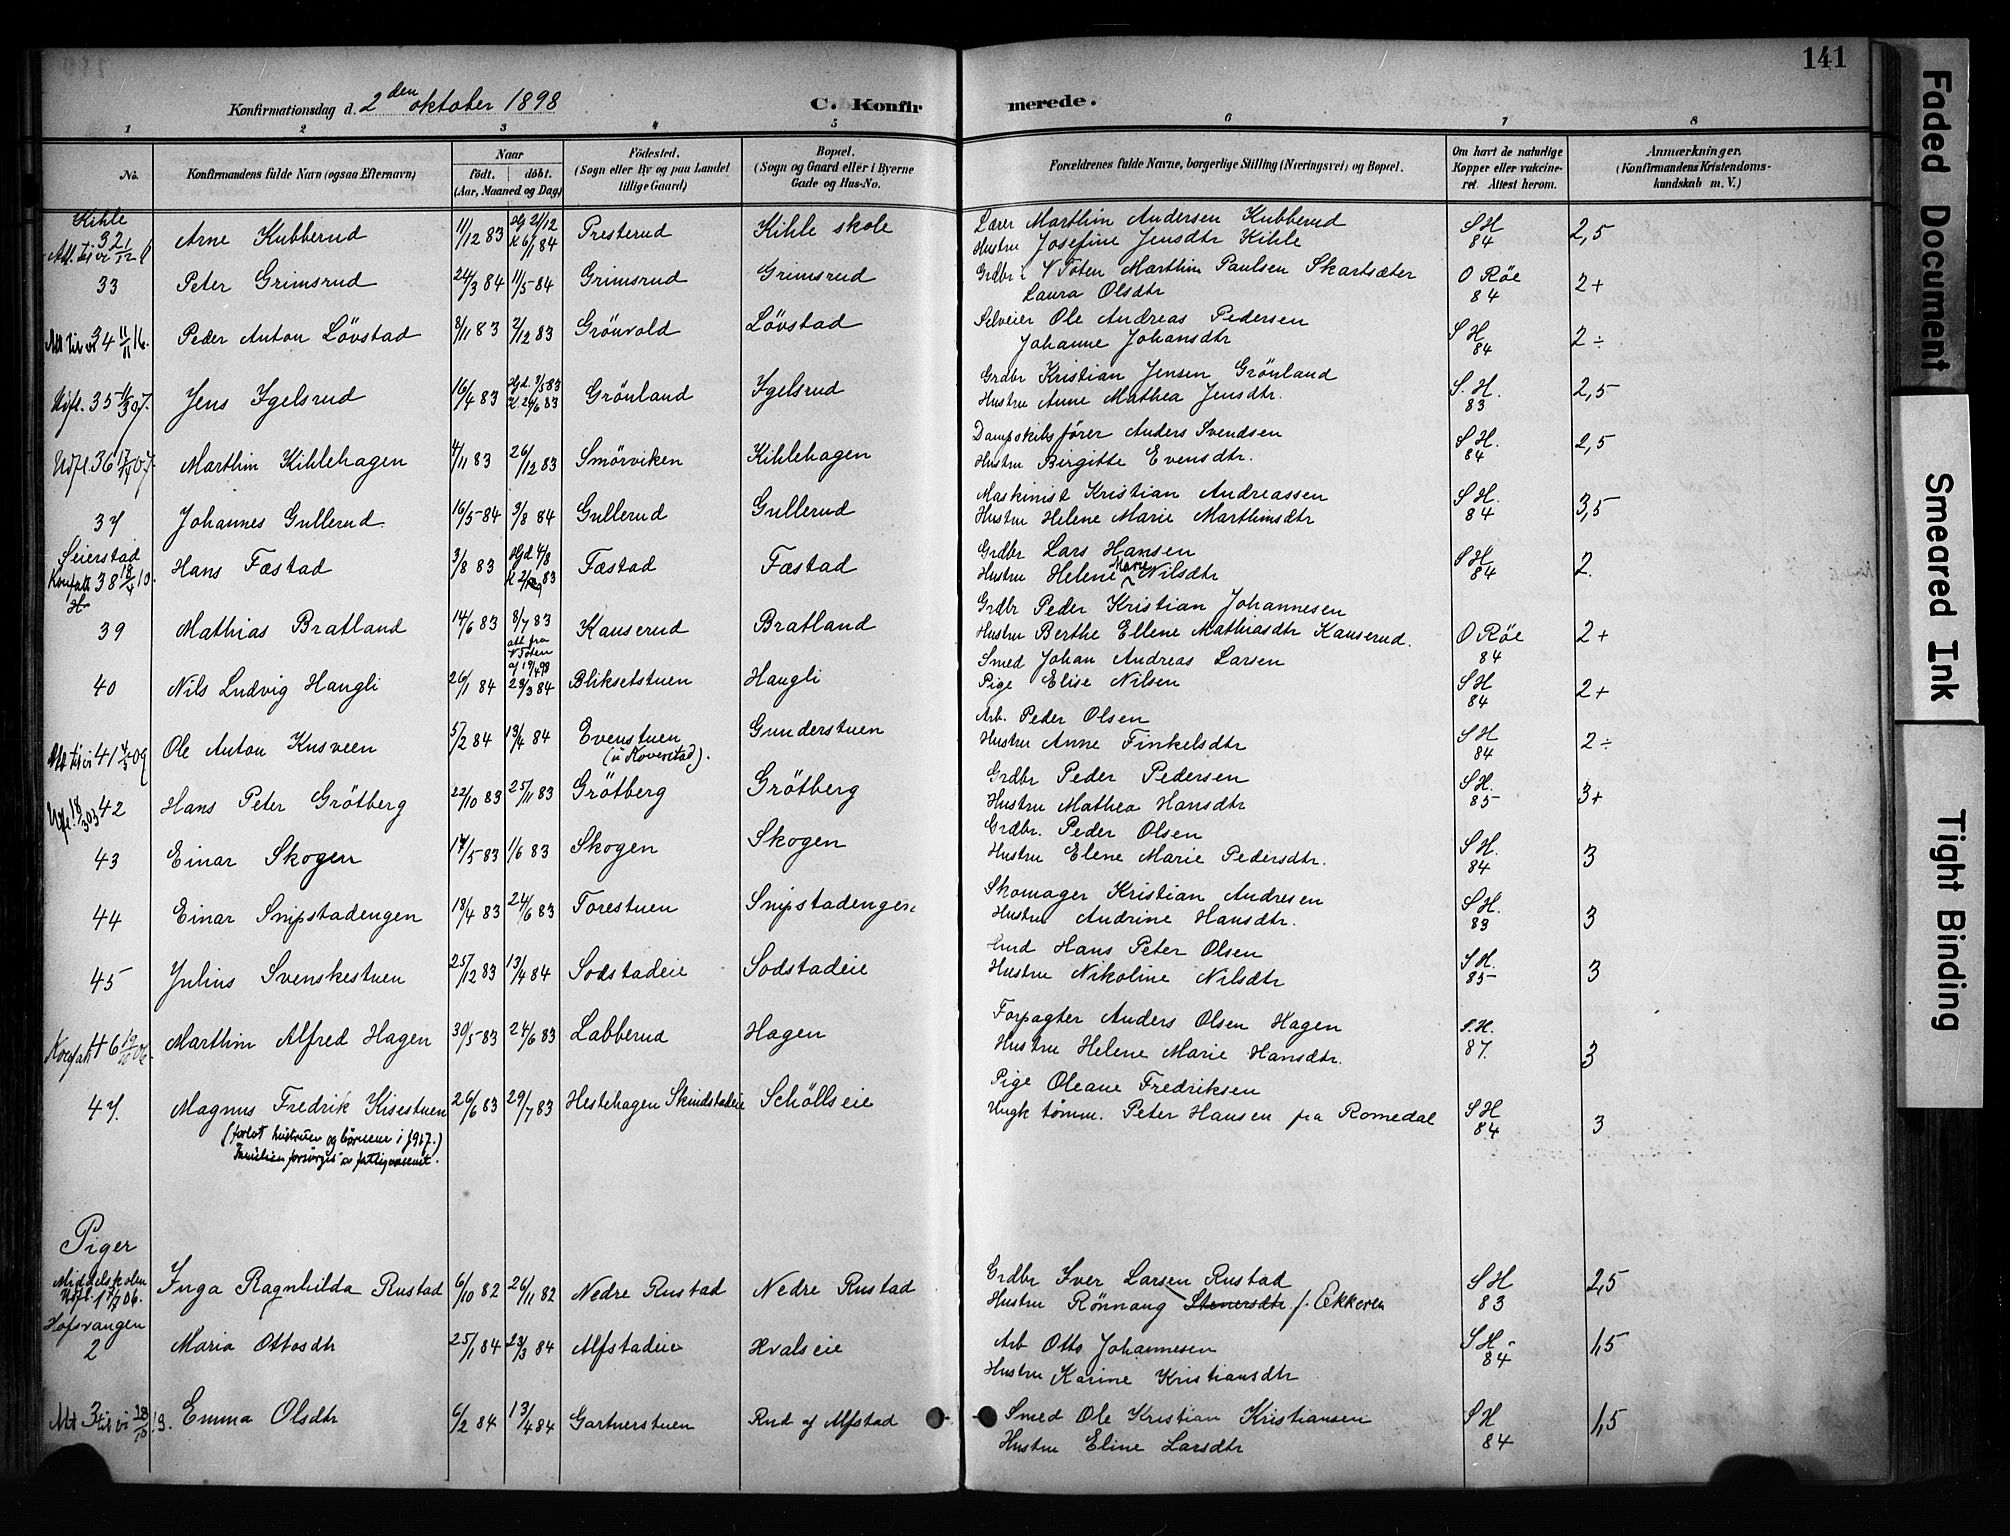 141
Konfirmationsdag d. 2den oktober 1898 C. Konfirmerede.
1 2 3 4 5 6 7 8
No. Konfirmandens fulde Navn (ogsaa Efternavn) Naar født. døbt. (Aar, Maaned og Dag) Fødested. (Sogn eller By og paa Landet tillige Gaard) Bopæl. (Sogn og Gaard eller i Byerne Gade og Hus-No. Forældrenes fulde Navne, borgerlige Stilling (Næringsvei) og Bopæl. Om havt de naturlige Kopper eller vakcineret. Attest herom. Anmærkninger. (Konfirmandens Kristendomskundskab m. V.)
Kihle
32 Arne Kubberud 11/12 83 Hjd 21/12 K 6/1 84 Presterud Kihle skole Lærer Marthin Andersen Kubberud SH 84 2,5
Hustru Josefine Jensdtr Kihle
33 Peter Grimsrud 24/3 84 11/5 84 Grimsrud Grimsrud Grdbr i V Toten Marthin Paulsen Skartsæter O Röe 84 2+
Laura Olsdtr
Att til vi 34 11/11 16. Peder Anton Lövstad 8/11 83 2/12 83 Grönvold Lövstad Selveier Ole Andreas Pedersen SH 84 2÷
Johanne Johansdtr
Udfl. 35 07. Jens Igelsrud 16/4 83 Hjd. 3/5 83 K 24/6 83 Grönland Igelsrud Grdbr Kristian Jensen Grönland S.H. 83 2,5
Hustru Anne Mathea Jensdtr.
Udfl. 36 07. Marthin Kihlehagen 4/11 83 26/12 83 Smörviken Kihlehagen Dampskibsförer Anders Svendsen SH. 84 2,5
Hustru Birgitte Evensdtr.
37 Johannes Gullerud 16/5 84 3/8 84 Gullerud Gullerud Maskinist Kristian Andreassen SH. 84 3,5
Hustru Helene Marie Marthinsdtr
Seierstad
38 Hans Fæstad 3/8 83 Hjd 4/8 83 Fæstad Fæstad Grdbr Lars Hansen SH 84 2.
Hustru Helene Marie Nilsdtr
39 Mathias Bratland 14/6 83 8/7 83 Kauserud Bratland Grdbr Peder Kristian Johannesen O Röe 84 2+
att fra V Toten af 19/4 98
Hustru Berthe Ellene Mathiasdtr Kauserud.
40 Nils Ludvig Haugli 26/1 84 23/3 84 Bliksetstuen Haugli Smed Johan Andreas Larsen SH 84 2+
Pige Elise Nilsen
Att til vi 41 09 Ole Anton Kusveen 5/2 84 13/4 84 Evenstuen (u Hoverstad). Gunderstuen Arb. Peder Olsen SH 84 2÷
Hustru Anne Finkelsdtr
42 Hans Peter Grötberg 22/10 83 25/11 83 Grötberg Grötberg Grdbr Peder Pedersen SH. 85 3+
Hustru Mathea Hansdtr
43 Einar Skogen 17/5 83 1/6 83 Skogen Skogen Grdbr. Peder Olsen SH. 84 3
Hustru Elene Marie Pedersdtr.
44 Einar Snipstadengen 18/4 83 24/6 83 Forestuen Snipstadengen Skomager Kristian Andresen SH. 83 3
Hustru Andrine Hansdtr.
45 Julius Svenskestuen 25/12 83 13/4 84 Sodstadeie Sodstadeie Hmd Hans Peter Olsen SH. 85 3
Hustru Nikoline Nilsdtr
46 Marthin Alfred Hagen 30/5 83 24/6 83 Labberud Hagen Forpagter Anders Olsen Hagen S.H. 87. 3
Hustru Helene Marie Hansdtr.
47. Magnus Fredrik Kisestuen 26/6 83 29/7 83 Hestehagen Skindstadeie Schöllseie Pige Oleane Fredriksen SH 84 3
Ungk tömm. Peter Hansen fra Romedal
(forlot hustruen og börnene i 1917.)
Familien forsörges av fattigvæsenet.
Piger
Middelskolen
Udfl. 1 06. Inga Ragnhilda Rustad 6/10 82 26/11 82 Nedre Rustad Nedre Rustad Grdbr Iver Larsen Rustad SH 83 2,5
Hustru Rönnaug Stenersdtr f. Ekkeren
Hofsvangen
2 Maria Ottosdtr 25/1 84 23/3 84 Alfstadeie Hvalseie Arb Otto Johannesen SH. 84 1,5
Hustru Karine Kristiansdtr
Att 3 til vi 13. Emma Olsdtr 6/2 84 13/4 84 Gartnerstuen Rud af Alfstad Smed Ole Kristian Kristiansen SH 84 1,5
Hustru Eline Larsdtr
Faded Document
Smeared Ink
Tight Binding